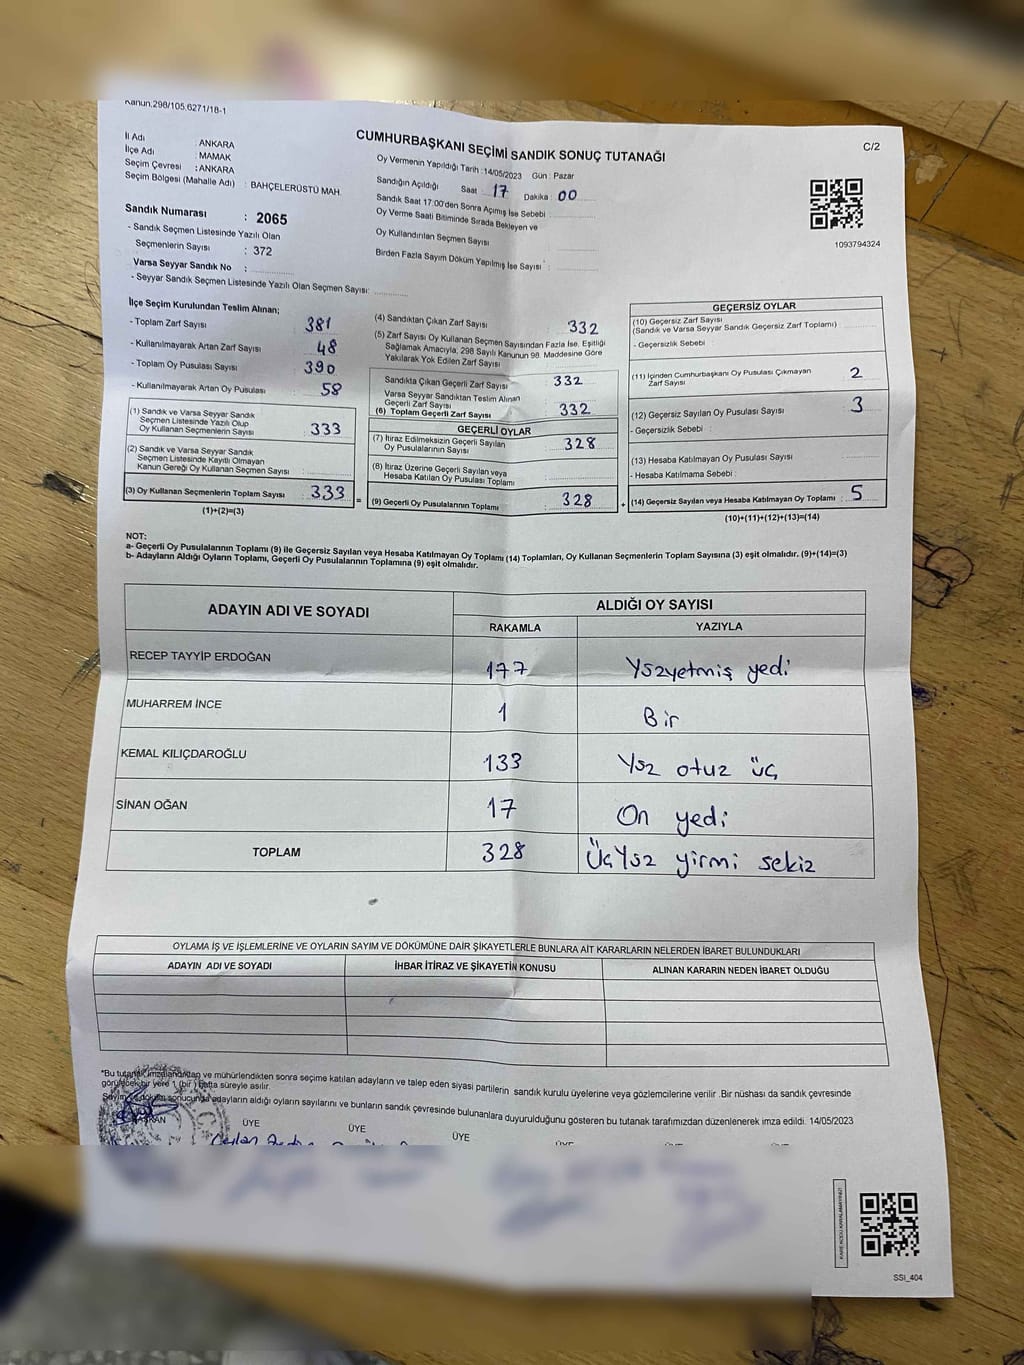 Kanun.298/105.6271/18-1
CUMHURBAŞKANI SEÇİMİ SANDIK SONUÇ TUTANAĞI
C/2
İl Adı : ANKARA
İlçe Adı : MAMAK
Seçim Çevresi : ANKARA
Seçim Bölgesi (Mahalle Adı) : BAHÇELERÜSTÜ MAH.
Sandık Numarası : 2065
- Sandık Seçmen Listesinde Yazılı Olan
Seçmenlerin Sayısı : 372
Varsa Seyyar Sandık No :
- Seyyar Sandık Seçmen Listesinde Yazılı Olan Seçmen Sayısı:
Oy Vermenin Yapıldığı Tarih :14/05/2023 Gün : Pazar
Sandığın Açıldığı Saat 17 Dakika : 00
Sandık Saat 17:00'den Sonra Açılmış İse Sebebi
Oy Verme Saati Bitiminde Sırada Bekleyen ve
Oy Kullandırılan Seçmen Sayısı
Birden Fazla Sayım Döküm Yapılmış İse Sayısı :
1093794324
İlçe Seçim Kurulundan Teslim Alınan;
- Toplam Zarf Sayısı 381
- Kullanılmayarak Artan Zarf Sayısı 48
- Toplam Oy Pusulası Sayısı 390
- Kullanılmayarak Artan Oy Pusulası 58
(1) Sandık ve Varsa Seyyar Sandık
Seçmen Listesinde Yazılı Olup
Oy Kullanan Seçmenlerin Sayısı 333
(2) Sandık ve Varsa Seyyar Sandık
Seçmen Listesinde Kayıtlı Olmayan
Kanun Gereği Oy Kullanan Seçmen Sayısı
(3) Oy Kullanan Seçmenlerin Toplam Sayısı 333
(1)+(2)=(3)
(4) Sandıktan Çıkan Zarf Sayısı 332
(5) Zarf Sayısı Oy Kullanan Seçmen Sayısından Fazla İse, Eşitliği
Sağlamak Amacıyla, 298 Sayılı Kanunun 98. Maddesine Göre
Yakılarak Yok Edilen Zarf Sayısı
Sandıkta Çıkan Geçerli Zarf Sayısı 332
Varsa Seyyar Sandıktan Teslim Alınan
Geçerli Zarf Sayısı
(6) Toplam Geçerli Zarf Sayısı 332
GEÇERLİ OYLAR
(7) İtiraz Edilmeksizin Geçerli Sayılan
Oy Pusulalarının Sayısı 328
(8) İtiraz Üzerine Geçerli Sayılan veya
Hesaba Katılan Oy Pusulası Toplamı
= (9) Geçerli Oy Pusulalarının Toplamı 328
GEÇERSİZ OYLAR
(10) Geçersiz Zarf Sayısı
(Sandık ve Varsa Seyyar Sandık Geçersiz Zarf Toplamı)
- Geçersizlik Sebebi
(11) İçinden Cumhurbaşkanı Oy Pusulası Çıkmayan
Zarf Sayısı 2
(12) Geçersiz Sayılan Oy Pusulası Sayısı 3
- Geçersizlik Sebebi :
(13) Hesaba Katılmayan Oy Pusulası Sayısı
- Hesaba Katılmama Sebebi :
+ (14) Geçersiz Sayılan veya Hesaba Katılmayan Oy Toplamı : 5
(10)+(11)+(12)+(13)=(14)
NOT:
a- Geçerli Oy Pusulalarının Toplamı (9) ile Geçersiz Sayılan veya Hesaba Katılmayan Oy Toplamı (14) Toplamları, Oy Kullanan Seçmenlerin Toplam Sayısına (3) eşit olmalıdır. (9)+(14)=(3)
b- Adayların Aldığı Oyların Toplamı, Geçerli Oy Pusulalarının Toplamına (9) eşit olmalıdır.
ADAYIN ADI VE SOYADI
ALDIĞI OY SAYISI
RAKAMLA YAZIYLA
RECEP TAYYİP ERDOĞAN 177 Yüzyetmiş yedi
MUHARREM İNCE 1 Bir
KEMAL KILIÇDAROĞLU 133 Yüz otuz üç
SİNAN OĞAN 17 On yedi
TOPLAM 328 ÜçYüz yirmi sekiz
OYLAMA İŞ VE İŞLEMLERİNE VE OYLARIN SAYIM VE DÖKÜMÜNE DAİR ŞİKAYETLERLE BUNLARA AİT KARARLARIN NELERDEN İBARET BULUNDUKLARI
ADAYIN ADI VE SOYADI İHBAR İTİRAZ VE ŞİKAYETİN KONUSU ALINAN KARARIN NEDEN İBARET OLDUĞU
*Bu tutanak imzalandıktan ve mühürlendikten sonra seçime katılan adayların ve talep eden siyasi partilerin sandık kurulu üyelerine veya gözlemcilerine verilir .Bir nüshası da sandık çevresinde
görülecek bir yere 1 (bir ) hafta süreyle asılır.
Sayım döküm sonucunda adayların aldığı oyların sayılarını ve bunların sandık çevresinde bulunanlara duyurulduğunu gösteren bu tutanak tarafımızdan düzenlenerek imza edildi. 14/05/2023
BAŞKAN ÜYE ÜYE ÜYE
KARE KODU KARALAMAYINIZ!
SSI_404